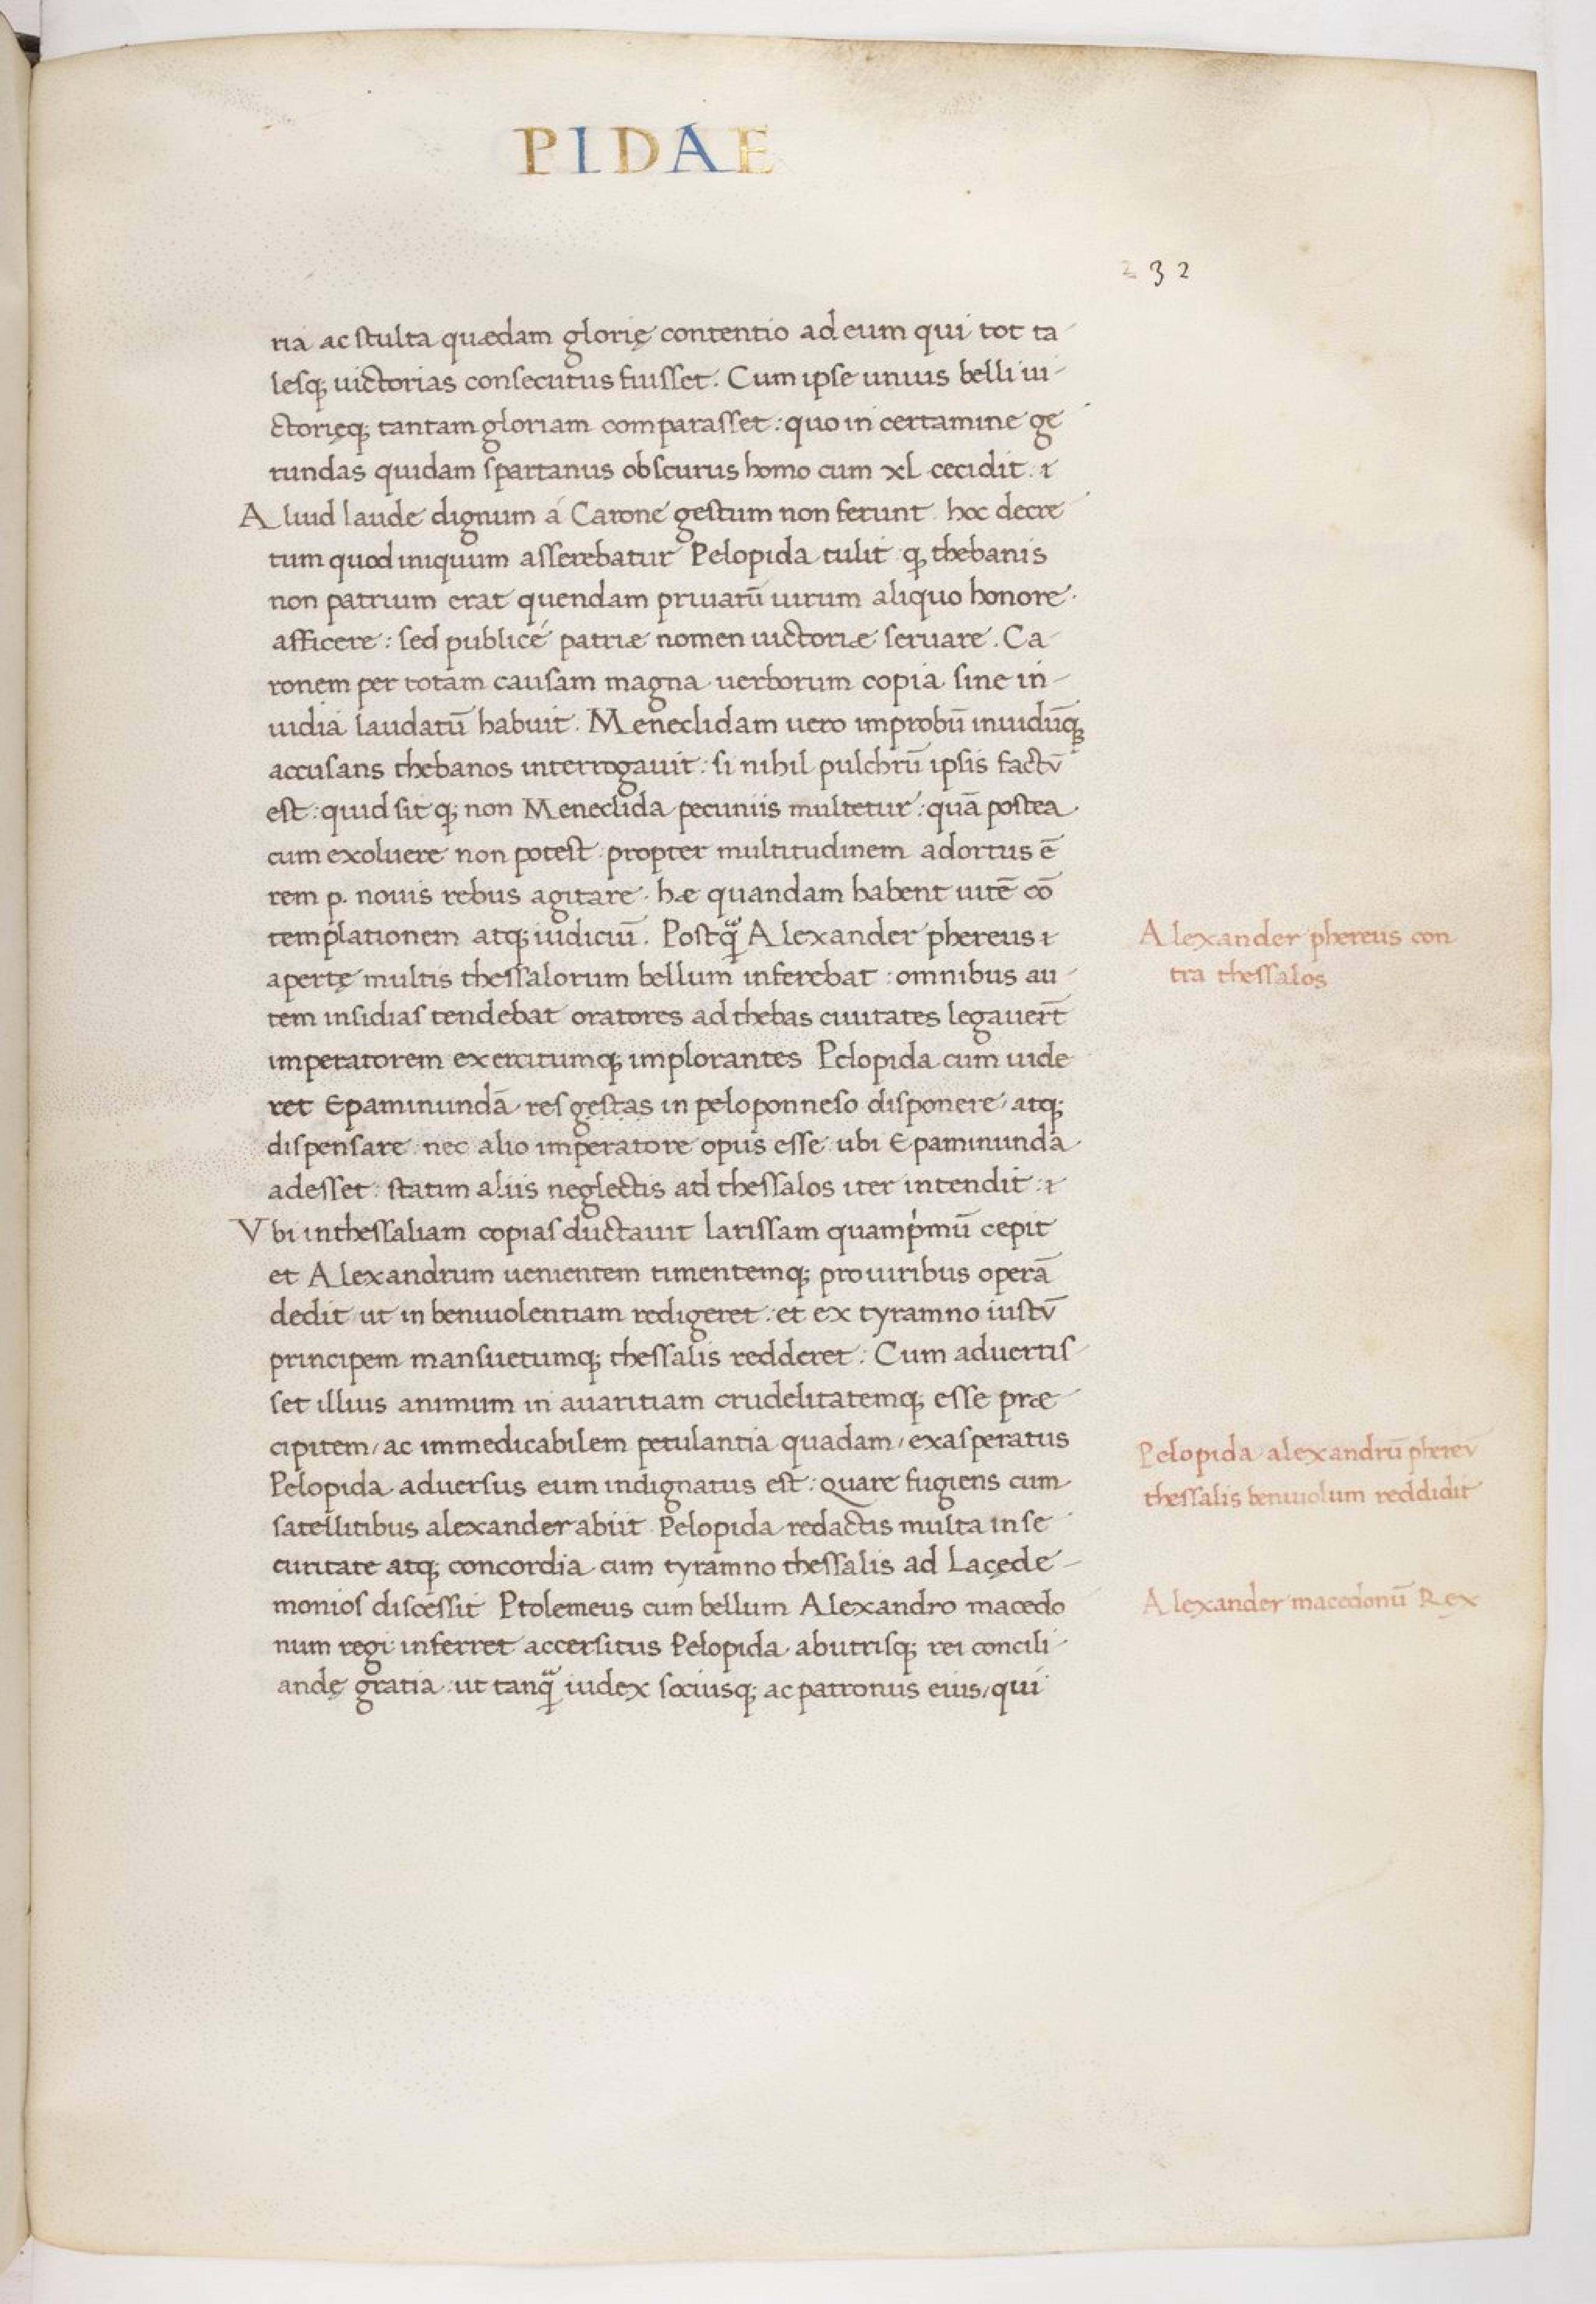 PIDAE
232
ria ac stulta quædam glorię contentio ad eum qui tot ta-
lesq; uictorias consecutus fuisset. Cum ipse unius belli ui-
ctorięq; tantam gloriam comparasset: quo in certamine ge
rundas quidam spartanus obscurus homo cum xl cecidit. &
Aliud laude dignum á Carone gestum non ferunt. hoc decre
tum quod iniquum asserebatur Pelopida tulit q; thebanis
non patrium erat quendam priuatū uirum aliquo honore
afficere: sed publicé patriæ nomen uictoriæ seruare. Ca-
ronem per totam causam magna uerborum copia sine in-
uidia laudatū habuit. Meneclidam uero improbū inuidūq;
accusans thebanos interrogauit: si nihil pulchrū ipsis factū
est: quid sit q; non Meneclida pecuniis multetur: quā postea
cum exoluere non potest propter multitudinem adortus ē
rem p. nouis rebus agitare. hæ quandam habent uitē cō
templationem atq; iudiciū. Postq̄ Alexander phereus &
apertę multis thessalorum bellum inferebat: omnibus au-
tem insidias tendebat oratores ad thebas ciuitates legauert̄
imperatorem exercitumq; implorantes Pelopida cum uide
ret Epaminundā res gestas in peloponneso disponere, atq;
dispensare nec alio imperatore opus esse ubi Epaminunda
adesset: statim aliis neglectis ad thessalos iter intendit: &
Vbi in thessaliam copias ductauit larissam quamp̍mū cepit
et Alexandrum uenientem timentemq; pro uiribus operā
dedit ut in beniuolentiam redigeret: et ex tyramno iustū
principem mansuetumq; thessalis redderet: Cum aduertis-
set illius animum in auaritiam crudelitatemq; esse præ-
cipitem, ac immedicabilem petulantia quadam, exasperatus
Pelopida aduersus eum indignatus est: quare fugiens cum
satellitibus alexander abiit Pelopida redactis multa in se
curitate atq; concordia cum tyramno thessalis ad Lacęde-
monios discessit Ptolemeus cum bellum Alexandro macedo
num regi inferret accersitus Pelopida ab utrisq; rei concili-
andę gratia: ut tanq̄ iudex sociusq; ac patronus eius, qui
Alexander phereus con
tra thessalos
Pelopida alexandrū phereū
thessalis beniuolum reddidit
Alexander macedonū Rex